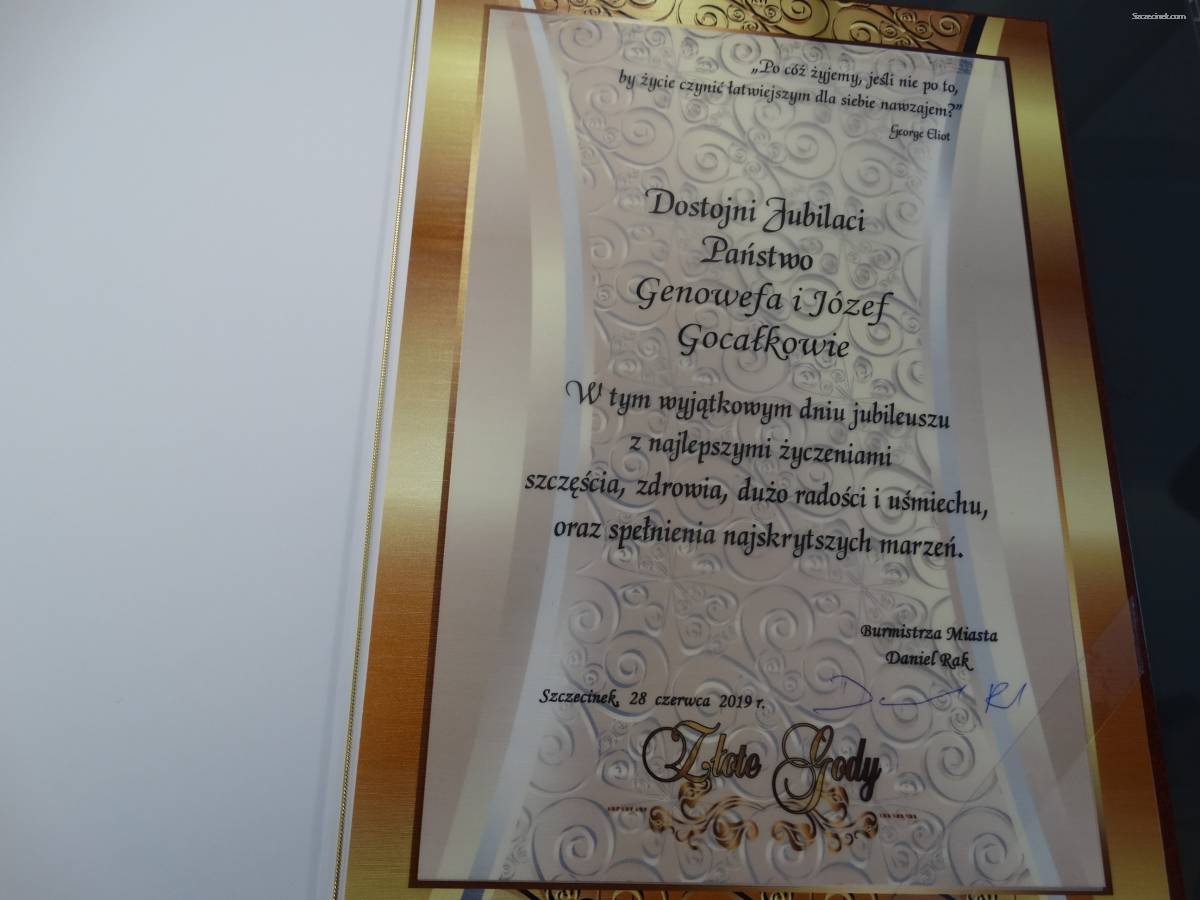 Szczecinek.com
„Po cóż żyjemy, jeśli nie po to,
by życie czynić łatwiejszym dla siebie nawzajem?”
George Eliot
Dostojni Jubilaci
Państwo
Genowefa i Józef
Gocałkowie
W tym wyjątkowym dniu jubileuszu
z najlepszymi życzeniami
szczęścia, zdrowia, dużo radości i uśmiechu,
oraz spełnienia najskrytszych marzeń.
Burmistrza Miasta
Daniel Rak
Szczecinek, 28 czerwca 2019 r.
Złote Gody